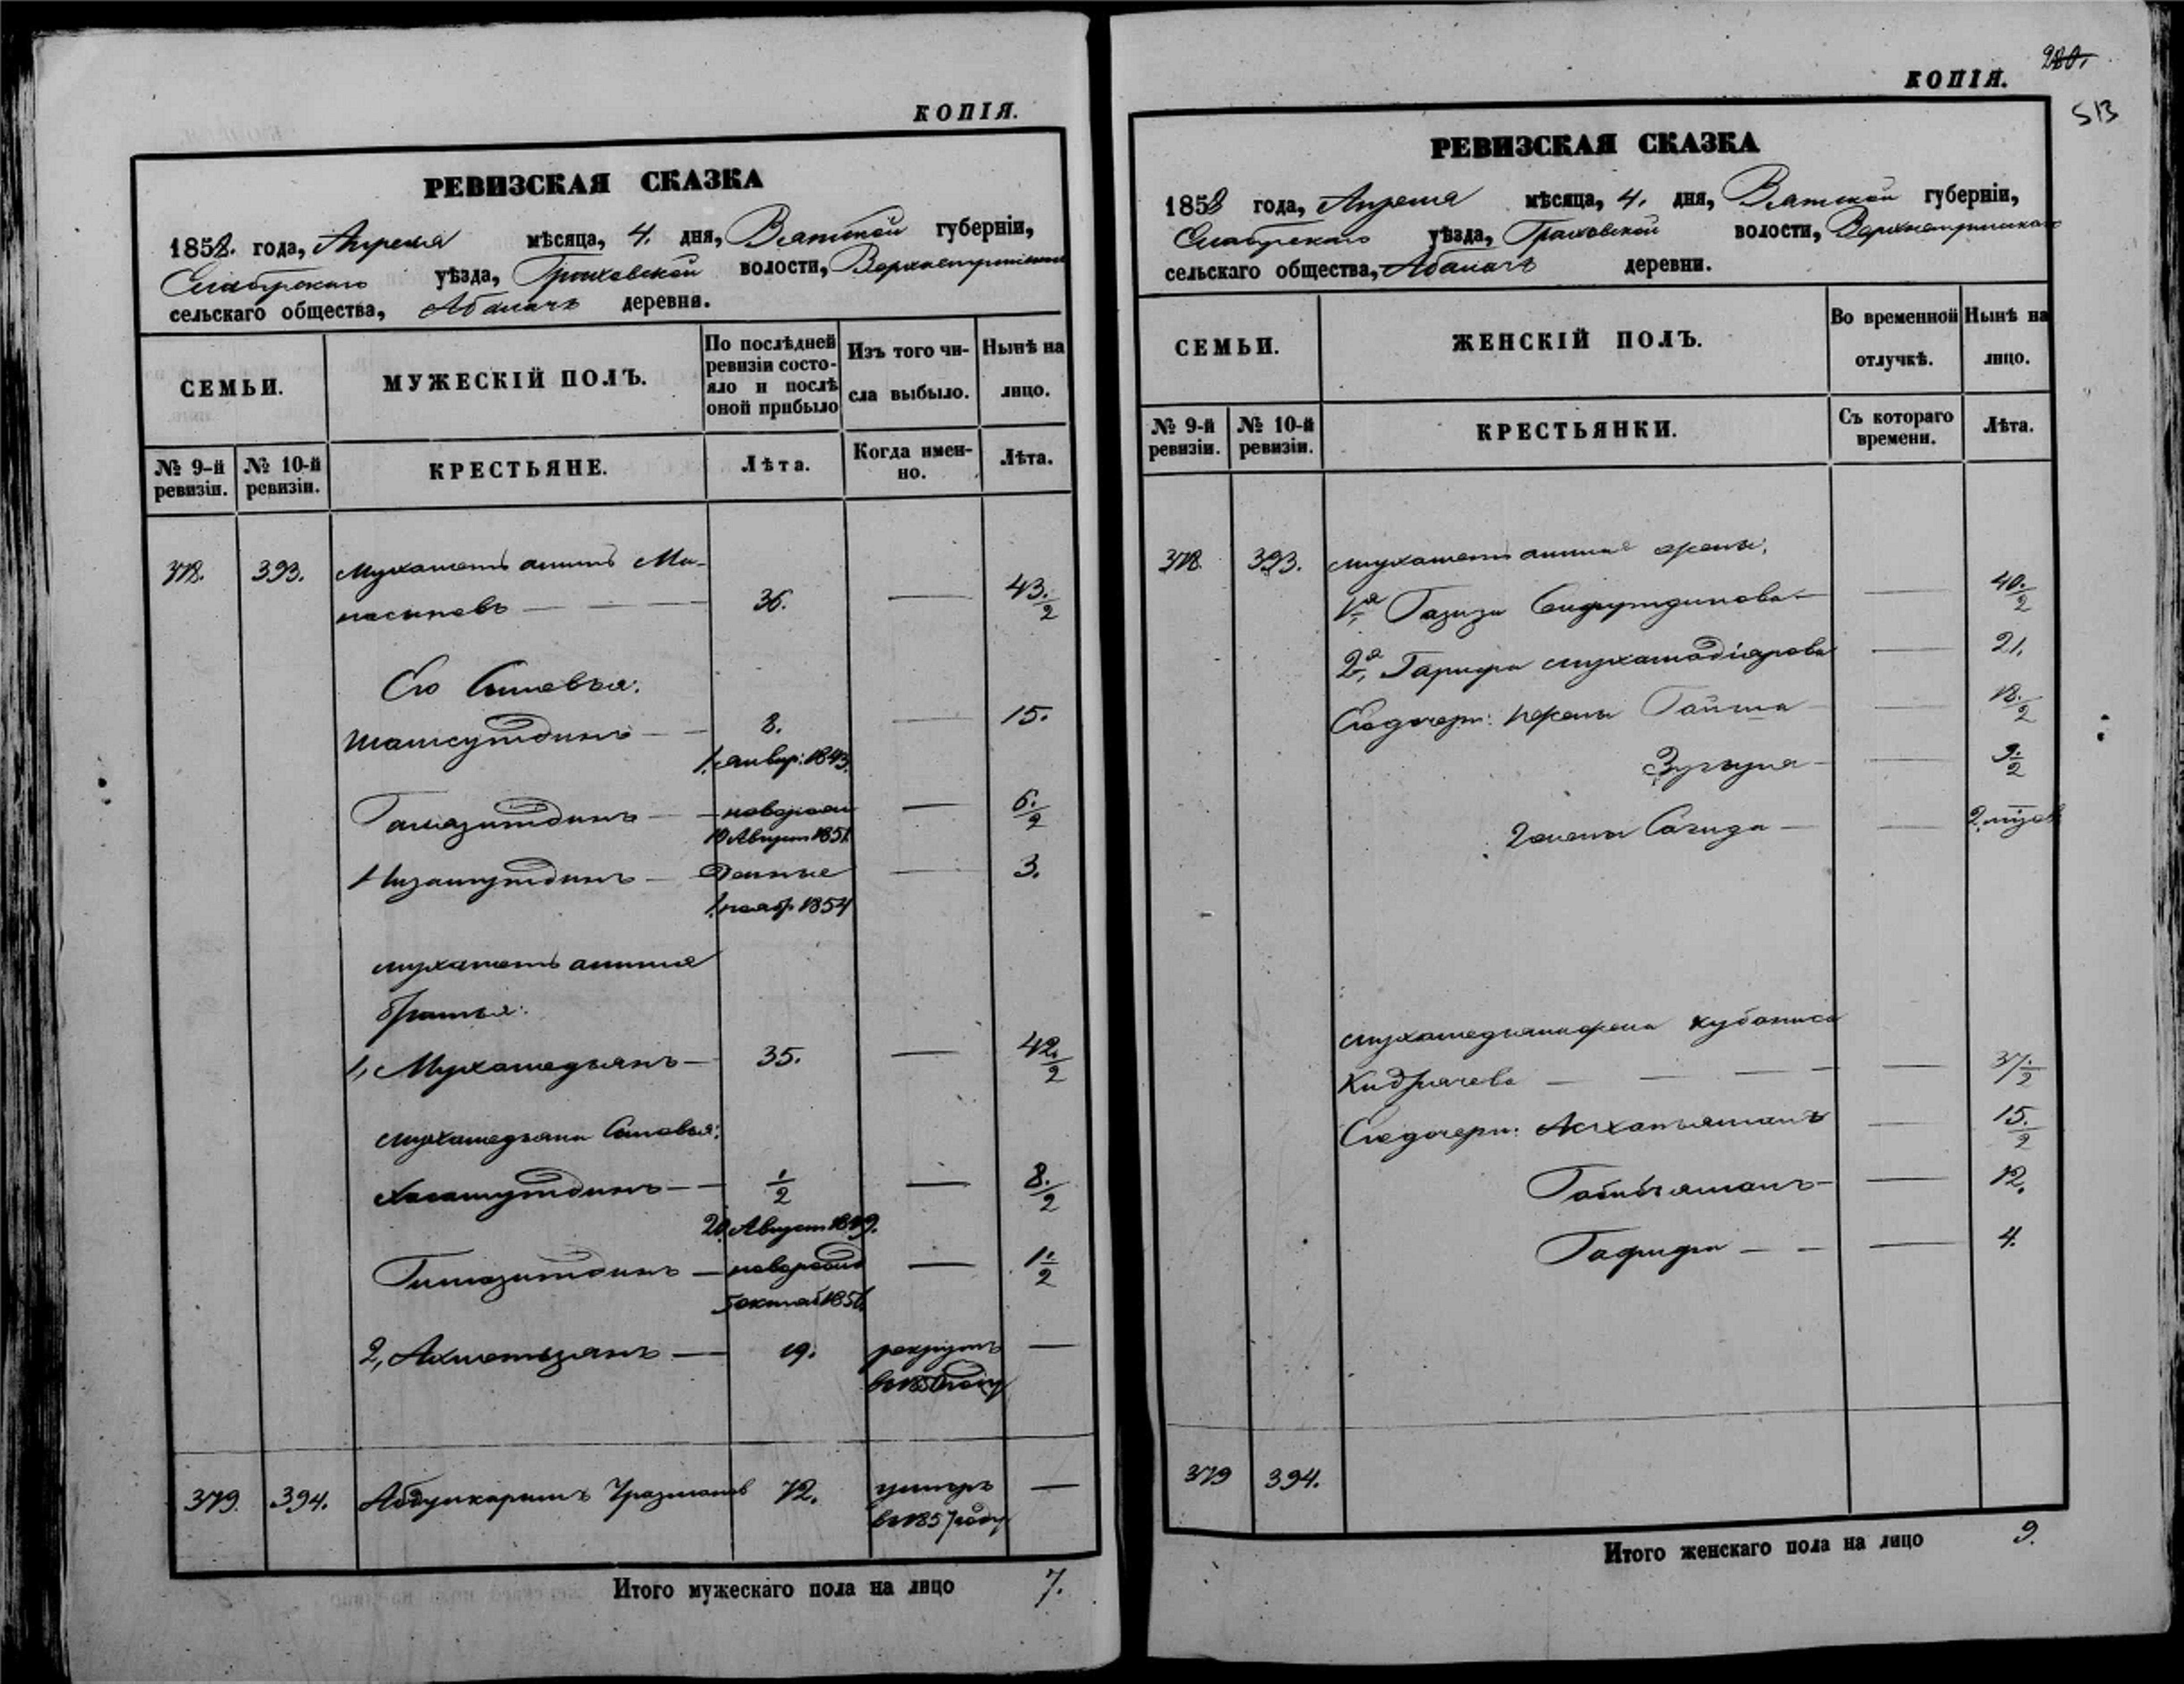 КОПІЯ.
РЕВИЗСКАЯ СКАЗКА
1858. года, Апреля мѣсяца, 4. дня, Вятской губерніи,
Елабугскаго уѣзда, Граховской волости,
сельскаго общества, Абалачъ деревня.
СЕМЬИ.
МУЖЕСКІЙ ПОЛЪ.
По послѣдней
ревизіи состо-
яло и послѣ
оной прибыло
Изъ того чи-
сла выбыло.
Нынѣ на
лицо.
№ 9-й
ревизіи.
№ 10-й
ревизіи.
КРЕСТЬЯНЕ.
Лѣта.
Когда имен-
но.
Лѣта.
378. 393. Мухаметъ аминъ Ма-
насыповъ — — — 36. — 43. ½
Его Сыновья:
Шамсутдинъ — — 8. — 15.
1. январ: 1843.
Гамазитдинъ — — новорож — 6. ½
19 Август 1851
Низамутдинъ — денные — 3.
1. нояб. 1854
Мухаметъ амина
братья:
1, Мухамедьянъ — 35. — 42. ½
Мухамедьяна Сыновья:
Хасамутдинъ — — ½ — 8. ½
20 Август 1849.
Гимазитдинъ — новорожд — 1. ½
5 октяб 1856.
2, Ахметьзянъ — 19. рекрутъ —
379. 394. Абдулкаримъ Уразмановъ 72. умеръ —
въ 1857 году
Итого мужескаго пола на лицо 7.
КОПІЯ.
513
РЕВИЗСКАЯ СКАЗКА
1858 года, Апреля мѣсяца, 4. дня, Вятской губерніи,
Елабугскаго уѣзда, Граховской волости,
сельскаго общества, Абалачъ деревни.
СЕМЬИ.
ЖЕНСКІЙ ПОЛЪ.
Во временной
отлучкѣ.
Нынѣ на
лицо.
№ 9-й
ревизіи.
№ 10-й
ревизіи.
КРЕСТЬЯНКИ.
Съ котораго
времени.
Лѣта.
378. 393. Мухаметъ амина жены:
1,я Газиза Сифутдинова — — 40. ½
2,я Гарифа Мухамадіярова — 21.
Его дочери: 1 жены Гайша — — 18. ½
Зугъуна — — 9. ½
2 жены Сагида — — 2. мѣсяц
Мухамедьяна жена Кубаниса
Кидрячева — — — — — 37. ½
Его дочери: Асхатьямалъ — 15. ½
Габибъямалъ — — 12.
Гафифа — — — 4.
379 394.
Итого женскаго пола на лицо 9.